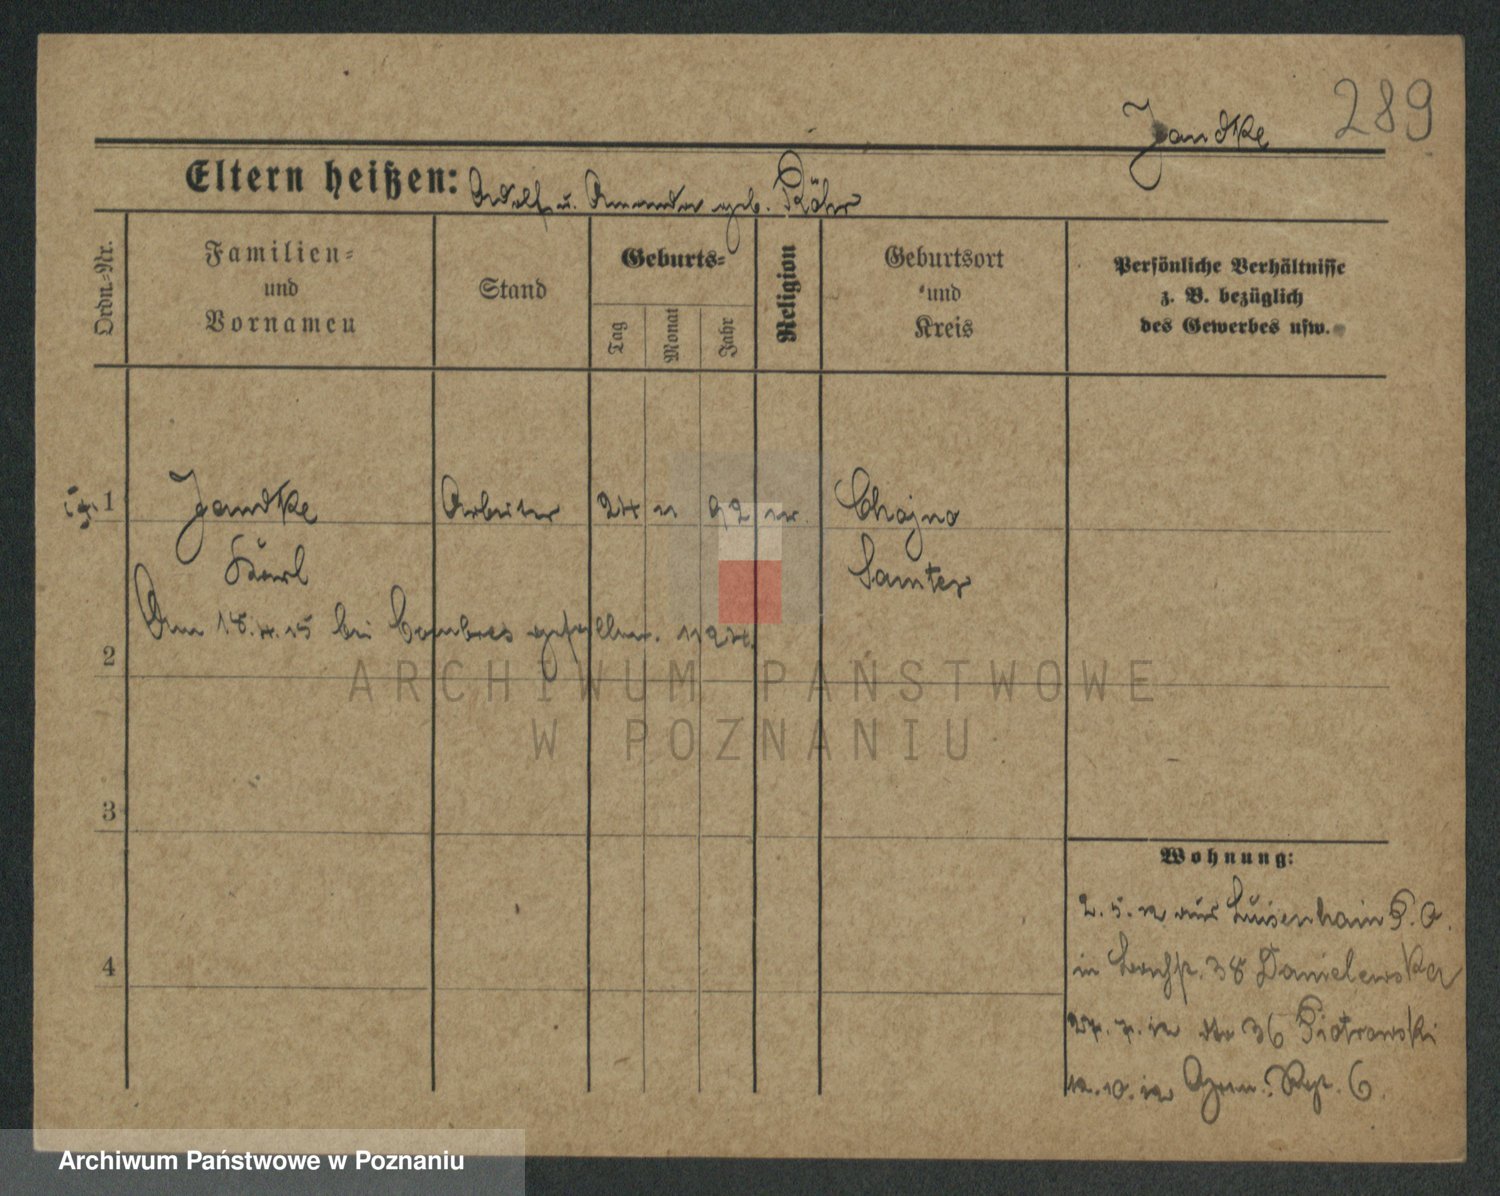 289
Jandke
Eltern heißen: Adolf u. Amanda geb. Röhr
Ordn.-Nr.
Familien-
und
Vornamen
Stand
Geburts-
Tag
Monat
Jahr
Religion
Geburtsort
und
Kreis
Persönliche Verhältnisse
z. B. bezüglich
des Gewerbes usw.
1 Jandke Arbeiter 24 11 92 Chojno
Karl Samter
Am 18.4.15 bei Combres gefallen. 1124.
2
3
4
ARCHIWUM PAŃSTWOWE
W POZNANIU
Wohnung:
2. 5. 12 aus Luisenhain P. O.
in 38 Danielewska
27. 7. 12 dto 36 Piotrowski
12. 10. 12 6.
Archiwum Państwowe w Poznaniu